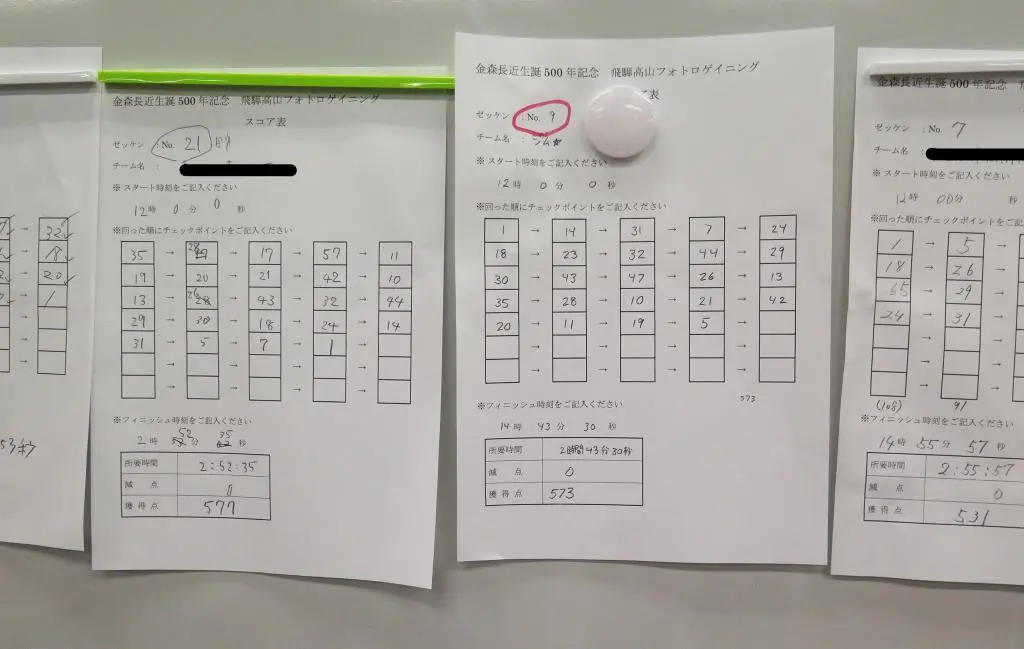 32
18
20
→ 1
金森長近生誕 500 年記念　飛騨高山フォトロゲイニング
スコア表
ゼッケン ：No. 21
チーム名 ：
※ スタート時刻をご記入ください
12 時 0 分 0 秒
※回った順にチェックポイントをご記入ください
35 → → 17 → 57 → 11
19 → 20 → 21 → 42 → 10
13 → 26 → 43 → 32 → 44
29 → 30 → 18 → 24 → 14
31 → 5 → 7 → 1 →
→ → → →
→ → → →
※フィニッシュ時刻をご記入ください
2 時 52 分 35 秒
所要時間 2:52:35
減　点 0
獲 得 点 577
金森長近生誕 500 年記念　飛騨高山フォトロゲイニング
表
ゼッケン ：No. 9
チーム名 ：ジム☆
※ スタート時刻をご記入ください
12 時 0 分 0 秒
※回った順にチェックポイントをご記入ください
1 → 14 → 31 → 7 → 24
18 → 23 → 32 → 44 → 29
30 → 43 → 47 → 26 → 13
35 → 28 → 10 → 21 → 42
20 → 11 → 19 → 5 →
→ → → →
→ → → →
573
※フィニッシュ時刻をご記入ください
14 時 43 分 30 秒
所要時間 2時間43分30秒
減　点 0
獲 得 点 573
金森長近生誕 500 年記念　飛騨高山フォ
ゼッケン ：No. 7
チーム名 ：
※ スタート時刻をご記入ください
12 時 00 分 秒
※回った順にチェックポイントをご記入
1 → 5
18 → 26
65 → 29
24 → 31
→
→
(108) 91
※フィニッシュ時刻をご記入くださ
14 時 55 分 57 秒
所要時間 2:55:57
減　点 0
獲 得 点 531